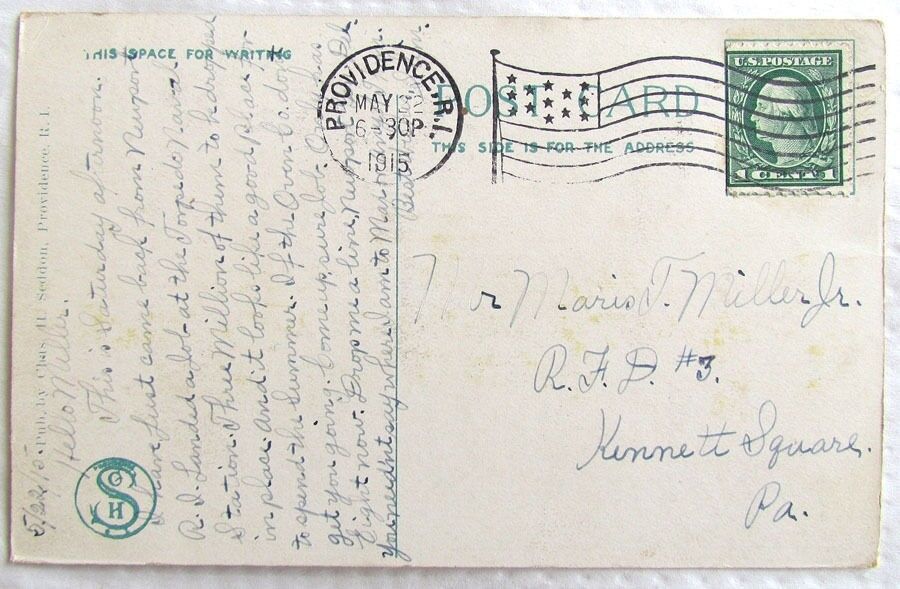 THIS SPACE FOR WRITING
POST CARD
THIS SIDE IS FOR THE ADDRESS
PROVIDENCE, R.I.
MAY 22
6-30P
1915
U.S. POSTAGE
1 CENT 1
Pub. by Chas. H. Seddon, Providence, R. I.
S
H
5/22/15.
Hello Miller.
This is Saturday afternoon.
I have just came back from Newport
R. I. Landed a Job at the Torpedo Naval
Station. Three Million of them to be drafted
in place And it looks like a good place for
to spend the Summer. If the Oven Co. don't
get you going. Come up, sure Job.
right now. Drop me a line, Newport, R.I.
you neednt say where I am to
Mr Maris T. Miller Jr.
R. F. D. #3.
Kennett Square.
Pa.